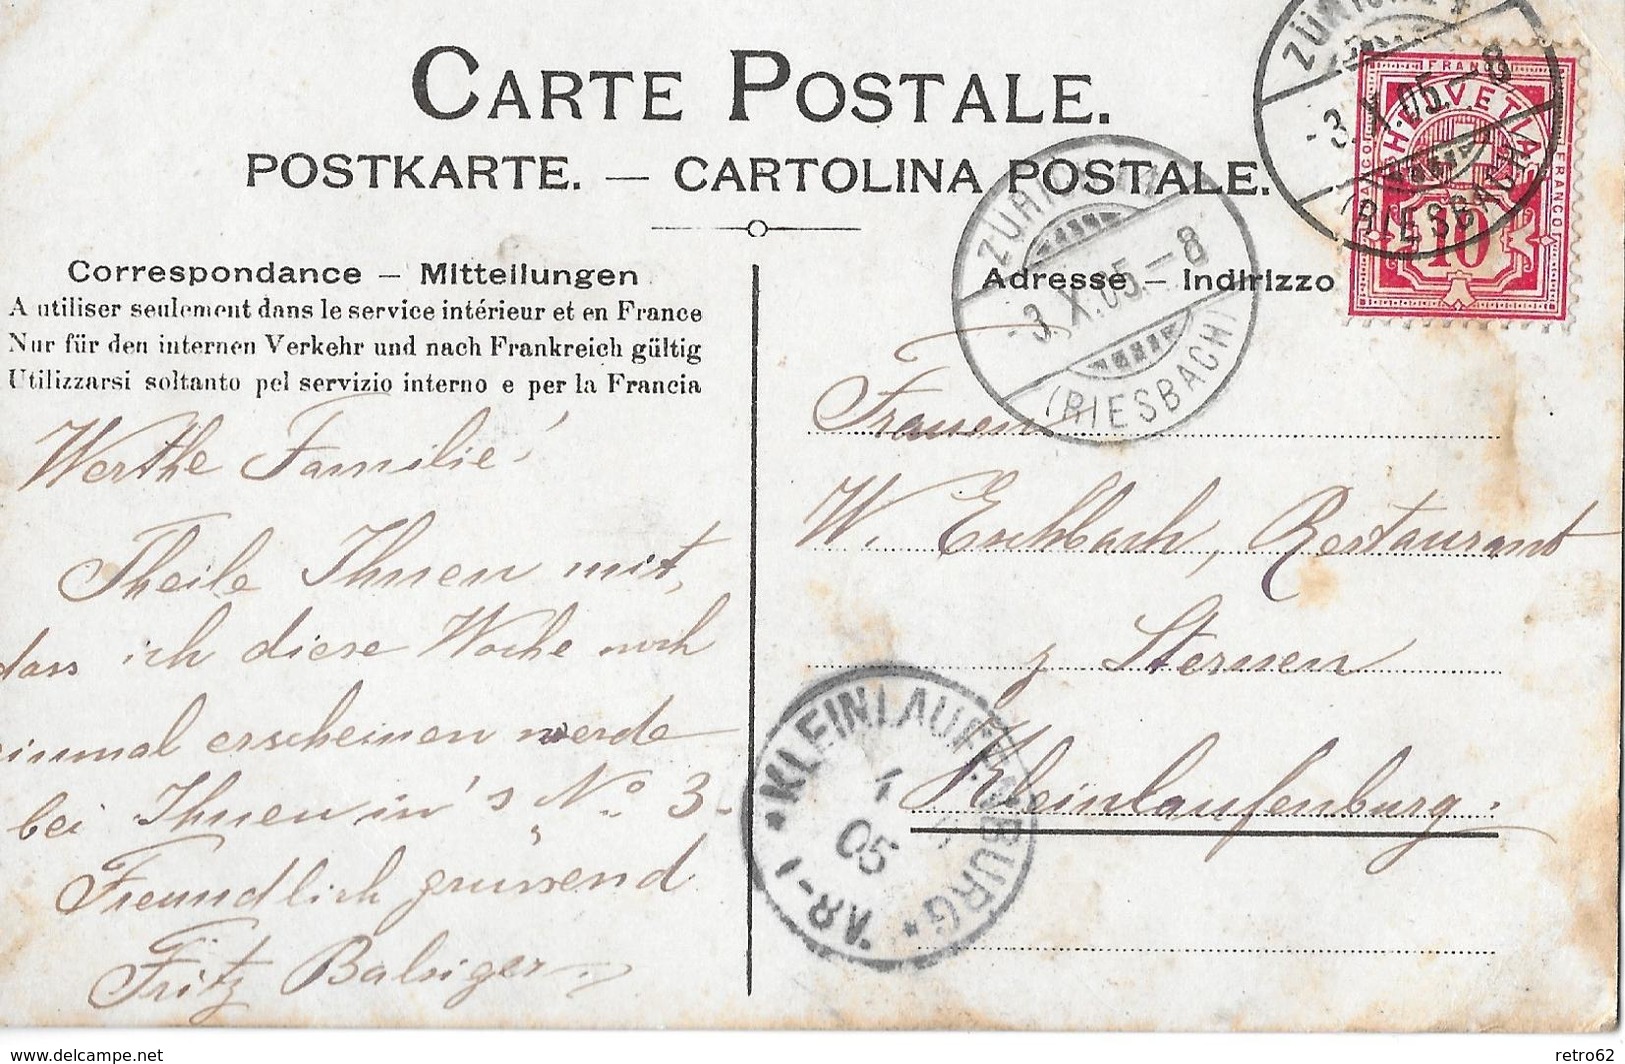 CARTE POSTALE.
POSTKARTE. — CARTOLINA POSTALE.
Correspondance – Mitteilungen
A utiliser seulement dans le service intérieur et en France
Nur für den internen Verkehr und nach Frankreich gültig
Utilizzarsi soltanto pel servizio interno e per la Francia
Werthe Familie!
Theile Ihnen mit,
dass ich diese Woche noch
einmal erscheinen werde
bei Ihnen in's No. 3.
Freundlich grüssend
Fritz Balsiger.
ZÜRICH
-3.X.05.-8
(RIESBACH)
FRANCO
HELVETIA
FRANCO
FRANCO
10
ZÜRICH
-3.X.05.-8
(RIESBACH)
Adresse – Indirizzo
Frauen
W. Eschbach, Restaurant
z Sternen
Kleinlaufenburg.
*KLEINLAUFENBURG*
05
delcampe.net
retro62